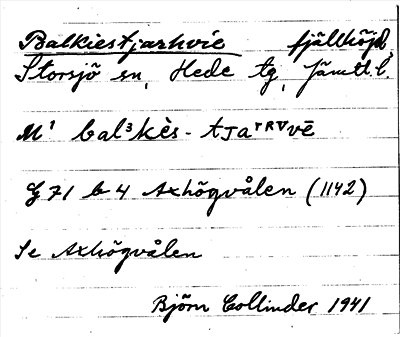 Balkiestjarhvie fjällhöjd,
Storsjö sn, Hede tg, Jämtl. l.
M¹ bal³kès-tja^rRVvē
G 71 b 4 Axhögvålen (1142)
Se Axhögvålen
Björn Collinder 1941